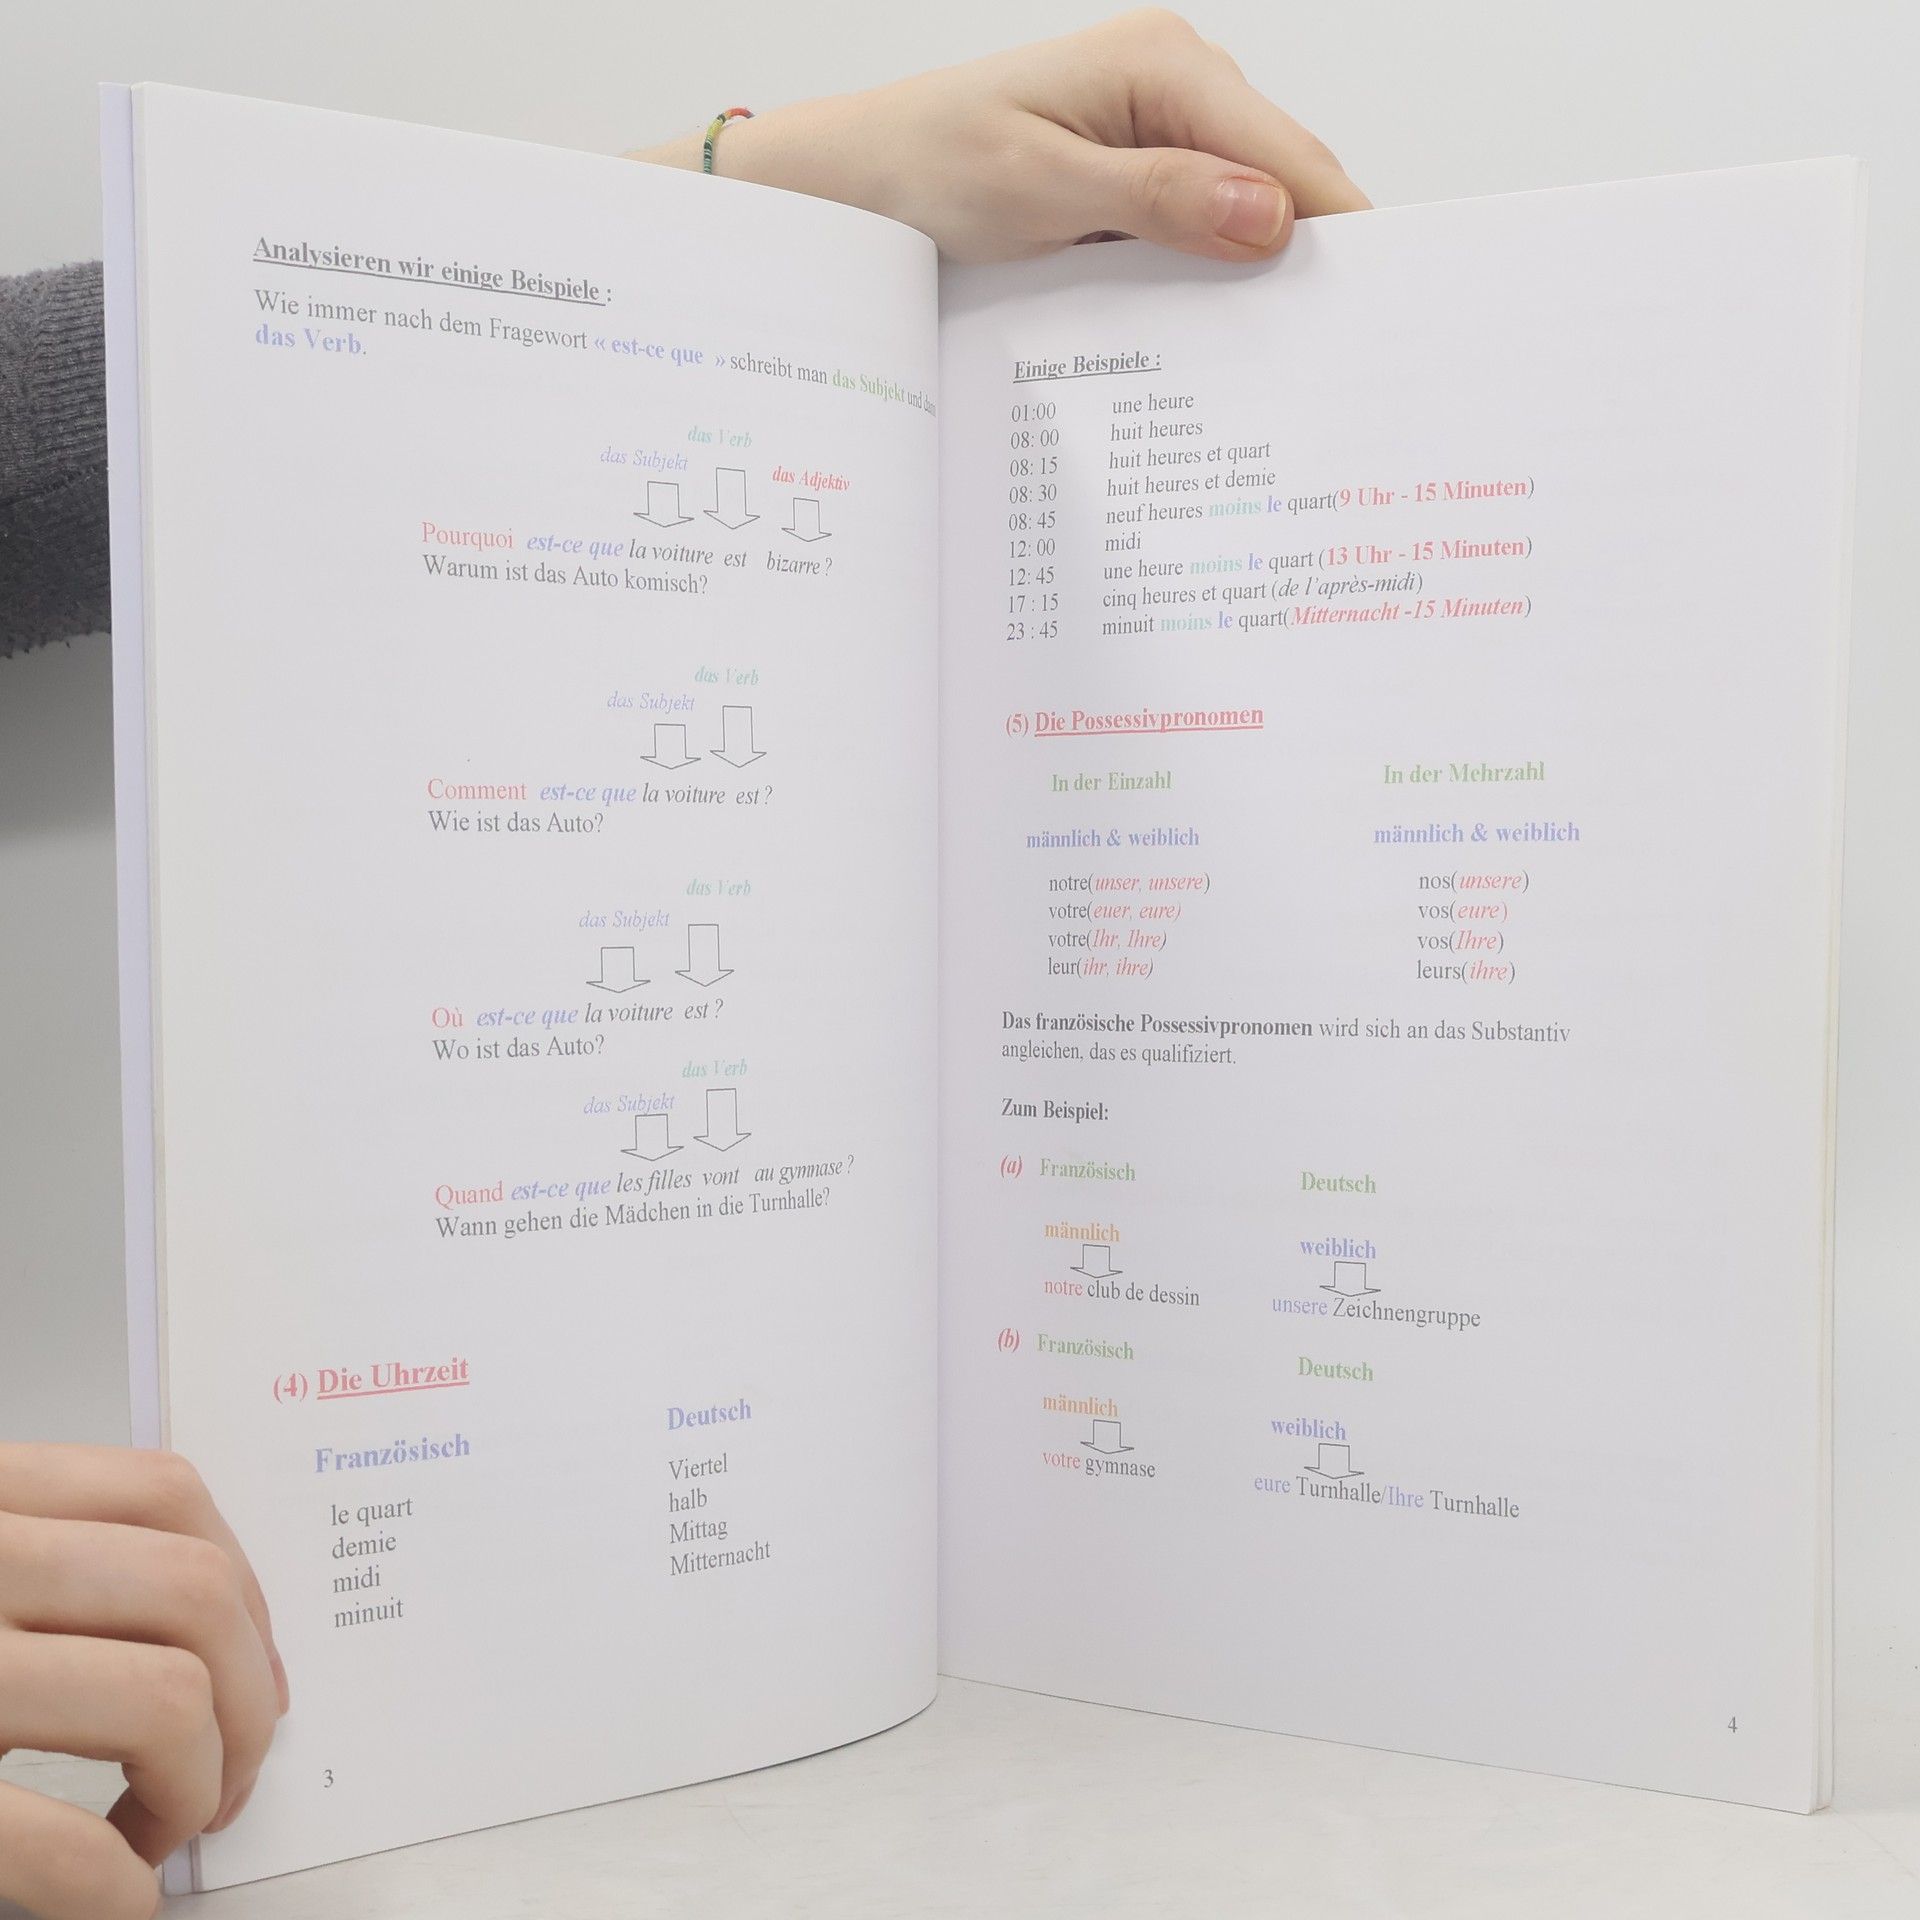 Analysieren wir einige Beispiele :
Wie immer nach dem Fragewort « est-ce que » schreibt man das Subjekt und dann
das Verb.
das Verb
das Subjekt
das Adjektiv
Pourquoi est-ce que la voiture est bizarre ?
Warum ist das Auto komisch?
das Verb
das Subjekt
Comment est-ce que la voiture est ?
Wie ist das Auto?
das Verb
das Subjekt
Où est-ce que la voiture est ?
Wo ist das Auto?
das Verb
das Subjekt
Quand est-ce que les filles vont au gymnase ?
Wann gehen die Mädchen in die Turnhalle?
(4) Die Uhrzeit
Französisch Deutsch
le quart Viertel
demie halb
midi Mittag
minuit Mitternacht
3
Einige Beispiele :
01:00 une heure
08: 00 huit heures
08: 15 huit heures et quart
08: 30 huit heures et demie
08: 45 neuf heures moins le quart(9 Uhr - 15 Minuten)
12: 00 midi
12: 45 une heure moins le quart (13 Uhr - 15 Minuten)
17 : 15 cinq heures et quart (de l'après-midi)
23 : 45 minuit moins le quart(Mitternacht -15 Minuten)
(5) Die Possessivpronomen
In der Einzahl In der Mehrzahl
männlich & weiblich männlich & weiblich
notre(unser, unsere) nos(unsere)
votre(euer, eure) vos(eure)
votre(Ihr, Ihre) vos(Ihre)
leur(ihr, ihre) leurs(ihre)
Das französische Possessivpronomen wird sich an das Substantiv
angleichen, das es qualifiziert.
Zum Beispiel:
(a) Französisch Deutsch
männlich weiblich
notre club de dessin unsere Zeichnengruppe
(b) Französisch Deutsch
männlich weiblich
votre gymnase eure Turnhalle/Ihre Turnhalle
4